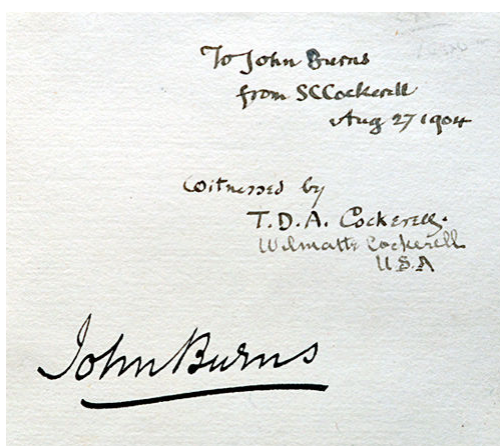 To John Burns
from SCCockerell
Aug 27 1904
Witnessed by
T.D.A. Cockerell.
Wilmatte Cockerell
U.S.A
John Burns